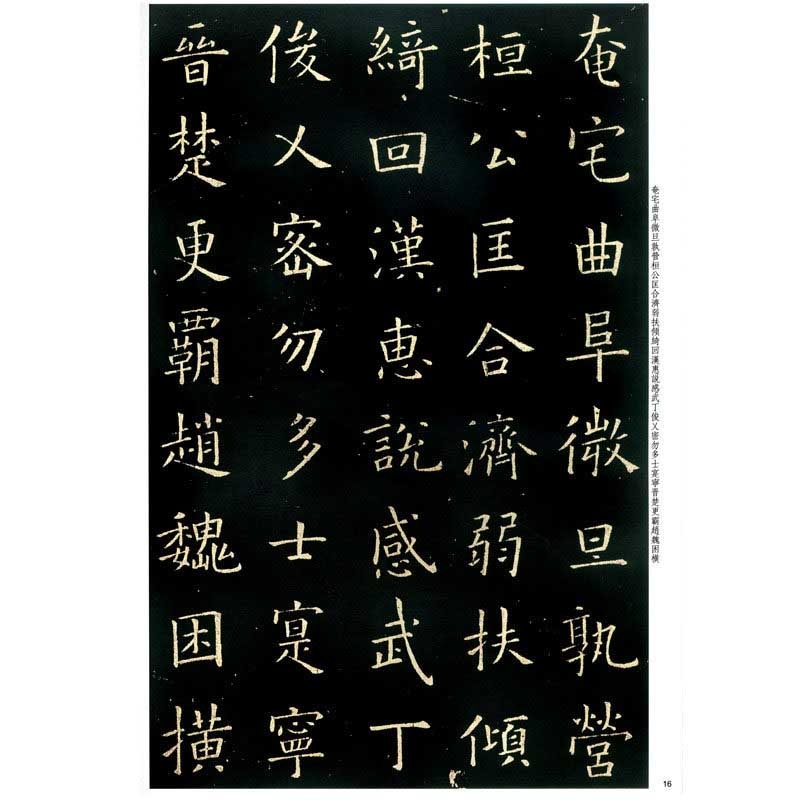 奄宅曲阜微旦孰營
桓公匡合濟弱扶傾
綺回漢惠說感武丁
俊乂密勿多士寔寧
晉楚更覇趙魏困橫
奄宅曲阜微旦孰營桓公匡合濟弱扶傾綺回漢惠說感武丁俊乂密勿多士寔寧晉楚更霸趙魏困橫
16